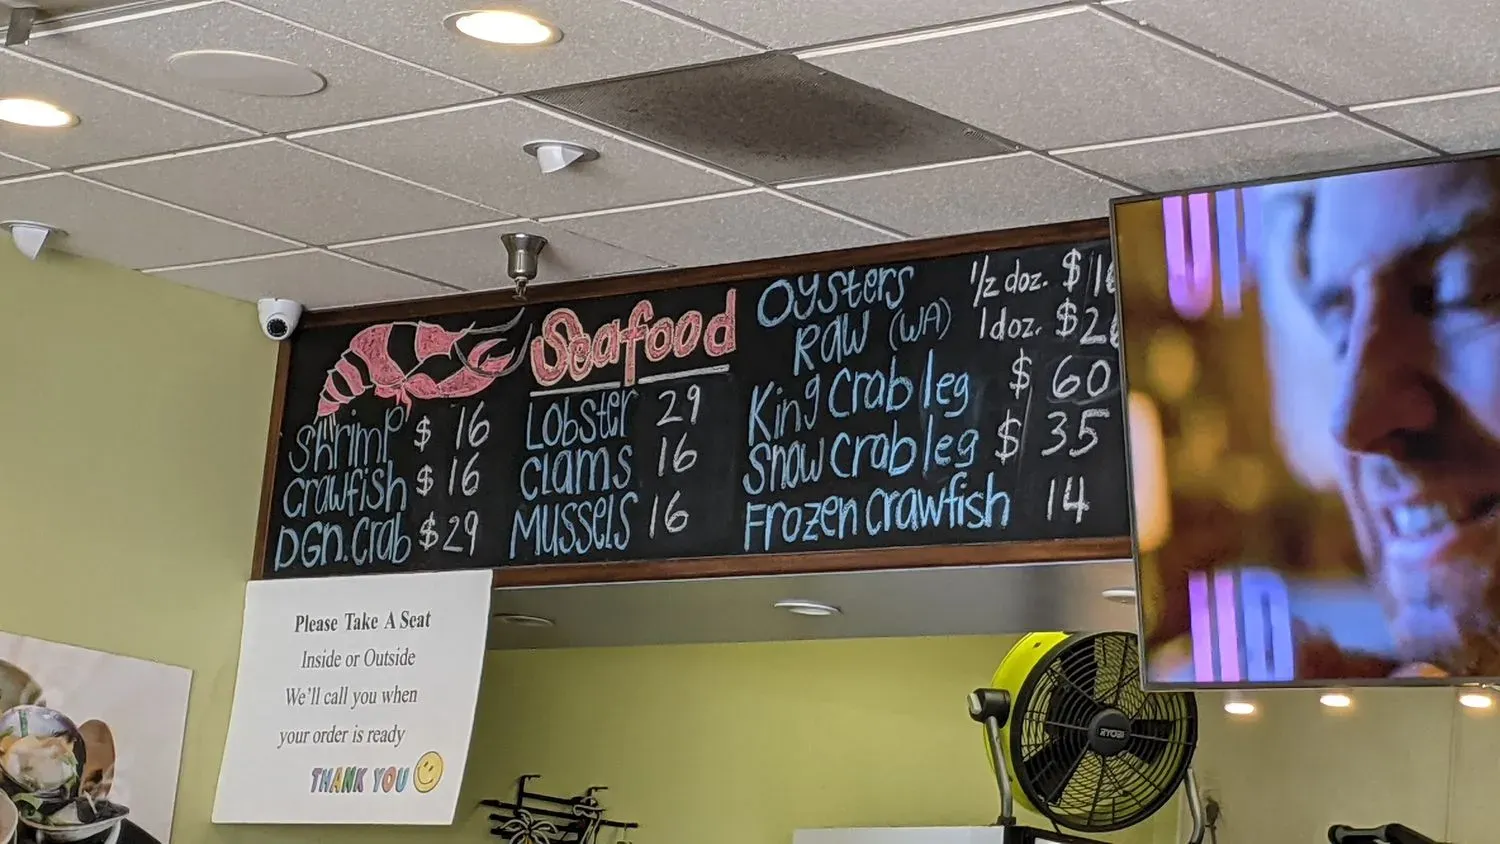 Seafood
Shrimp $ 16
Crawfish $ 16
DGN. Crab $29
Lobster 29
Clams 16
Mussels 16
Oysters 1/2 doz.
Raw (WA) 1 doz.
King Crab leg $ 60
Snow Crab leg $ 35
Frozen Crawfish 14
Please Take A Seat
Inside or Outside
We'll call you when
your order is ready
THANK YOU
RYOBI